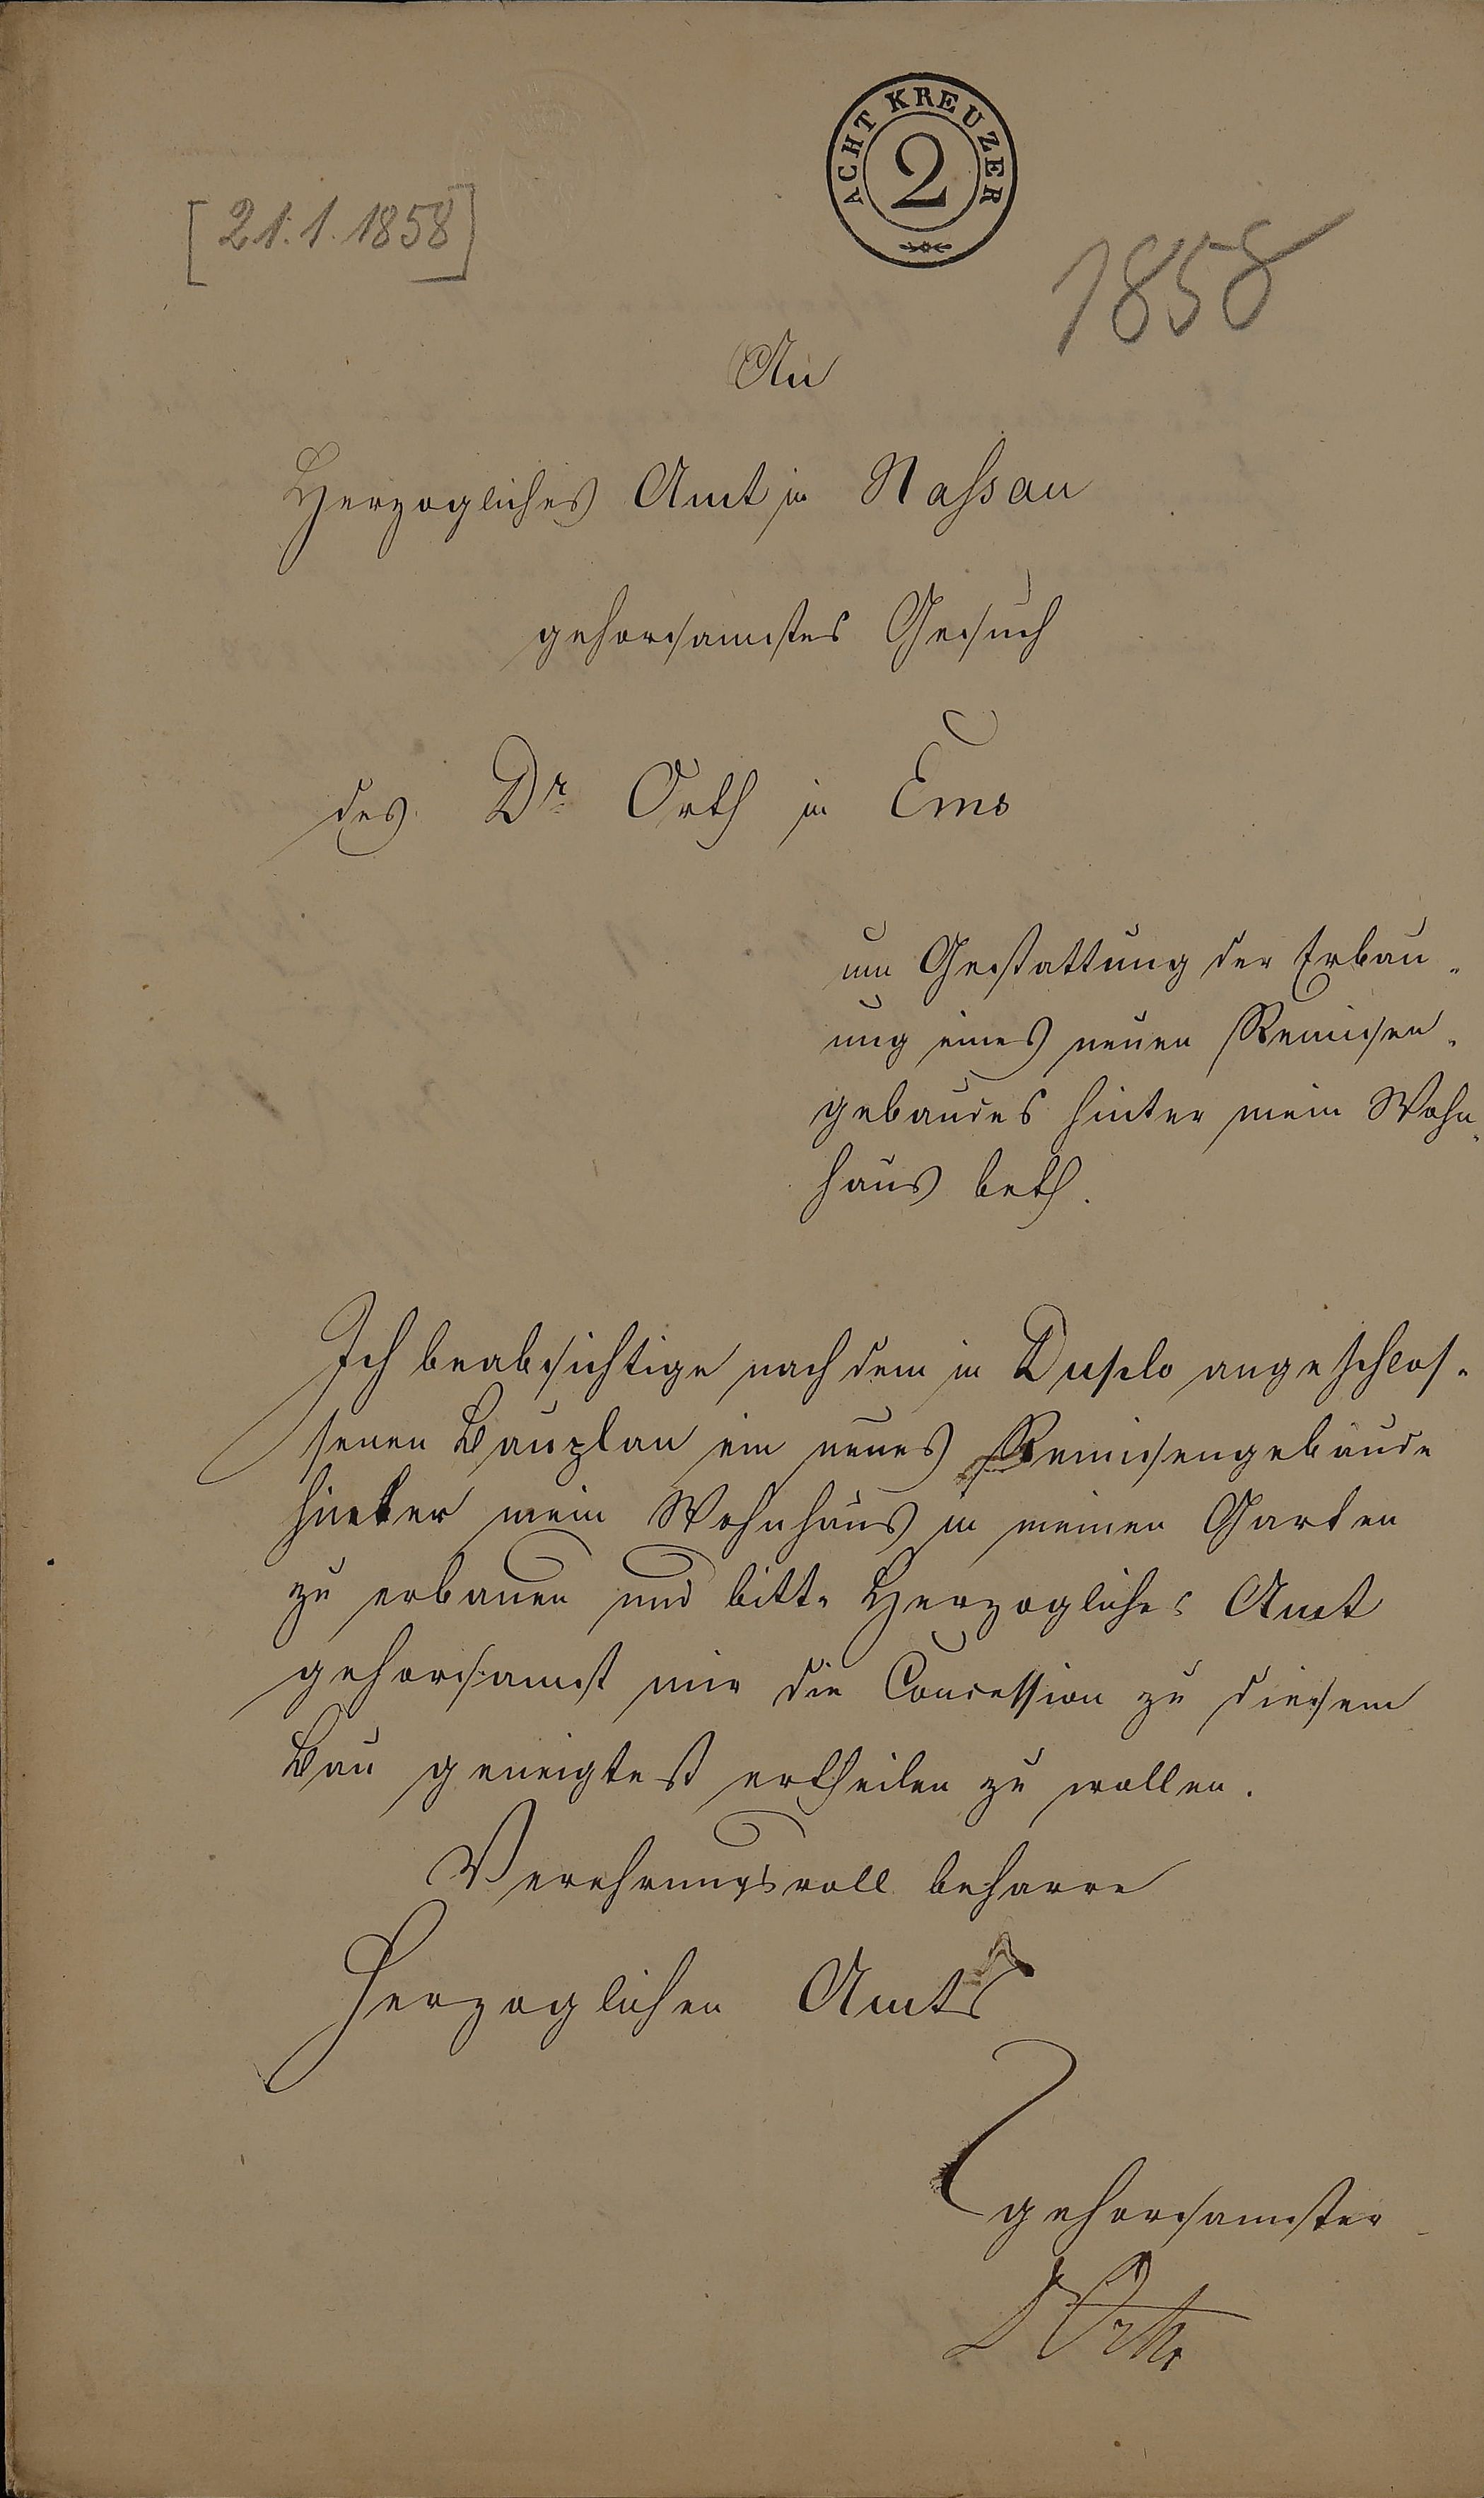 ACHT KREUZER
2
[21.1.1858]
1858
An
Herzogliches Amt in Nassau
gehorsamstes Gesuch
des Dr. Orth in Ems
um Gestattung der Erbau-
ung eines neuen Remisen-
gebaudes hinter mein Wohn-
haus beth.
Ich beabsichtige nach dem in Duplo angeschlos-
senen Bauplan ein neues Remisengebäude
hinter mein Wohnhaus in meinen Garten
zu erbauen und bitte Herzogliches Amt
gehorsamst mir die Concession zu diesem
Bau geneigtest ertheilen zu wollen.
Verehrungsvoll beharre
Herzoglichen Amts
gehorsamster
Dr Orth